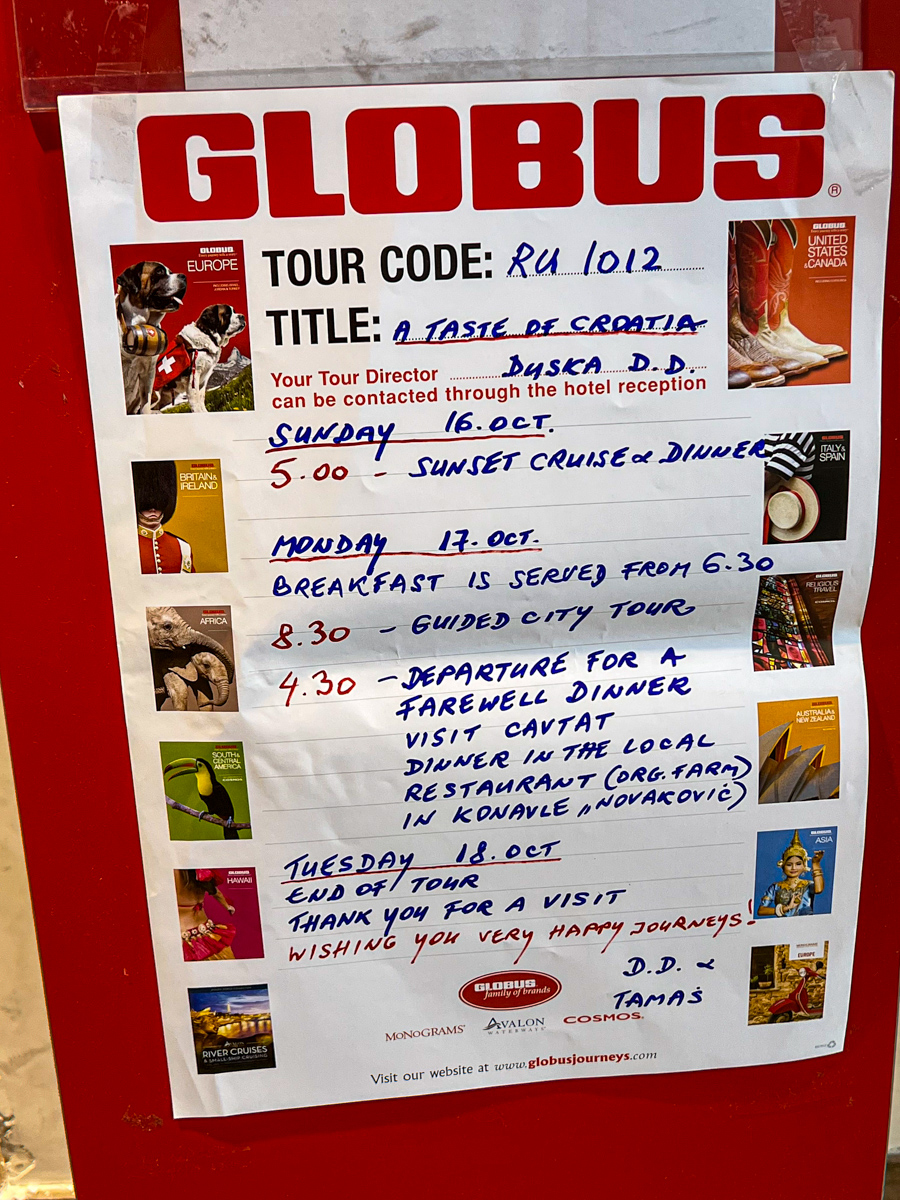 GLOBUS®
TOUR CODE: RU 1012
TITLE: A TASTE OF CROATIA
Your Tour Director DUSKA D.D.
can be contacted through the hotel reception
SUNDAY 16. OCT.
5.00 - SUNSET CRUISE & DINNER
MONDAY 17. OCT.
BREAKFAST IS SERVED FROM 6.30
8.30 - GUIDED CITY TOUR
4.30 - DEPARTURE FOR A
FAREWELL DINNER
VISIT CAVTAT
DINNER IN THE LOCAL
RESTAURANT (ORG. FARM)
IN KONAVLE „NOVAKOVIĆ)
TUESDAY 18. OCT
END OF TOUR
THANK YOU FOR A VISIT
WISHING YOU VERY HAPPY JOURNEYS!
D.D. &
TAMAŠ
GLOBUS
EUROPE
GLOBUS
BRITAIN &
IRELAND
AFRICA
SOUTH &
CENTRAL
AMERICA
GLOBUS
HAWAII
AVALON
RIVER CRUISES
A SMALL-SHIP CRUISING
GLOBUS
UNITED
STATES
& CANADA
ITALY &
SPAIN
GLOBUS
RELIGIOUS
TRAVEL
GLOBUS
AUSTRALIA &
NEW ZEALAND
GLOBUS
ASIA
EUROPE
GLOBUS
family of brands
MONOGRAMS® AVALON WATERWAYS® COSMOS.
Visit our website at www.globusjourneys.com